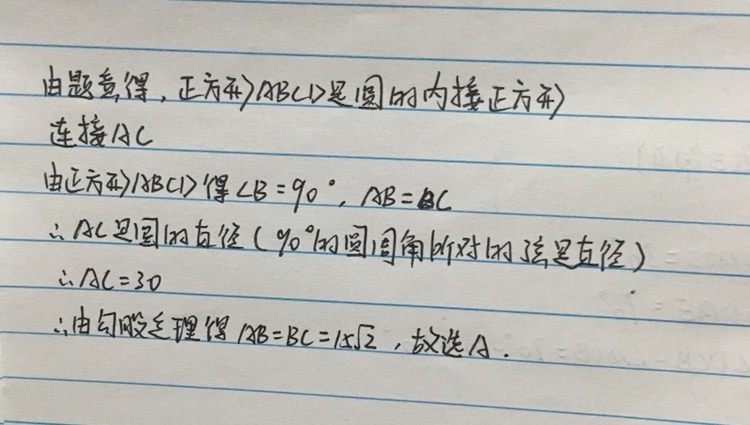 由题意得，正方形ABCD是圆的内接正方形
连接AC
由正方形ABCD得∠B=90°，AB=BC
∴AC是圆的直径（90°的圆周角所对的弦是直径）
∴AC=30
∴由勾股定理得AB=BC=15√2，故选A.